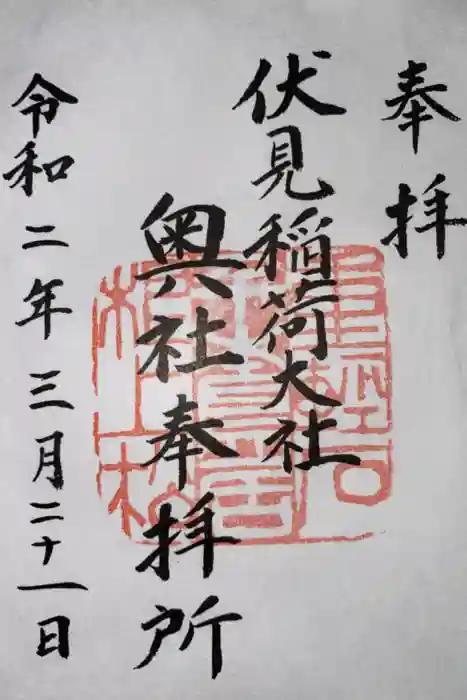 奉拝
伏見稲荷大社
奥社奉拝所
令和二年三月二十一日